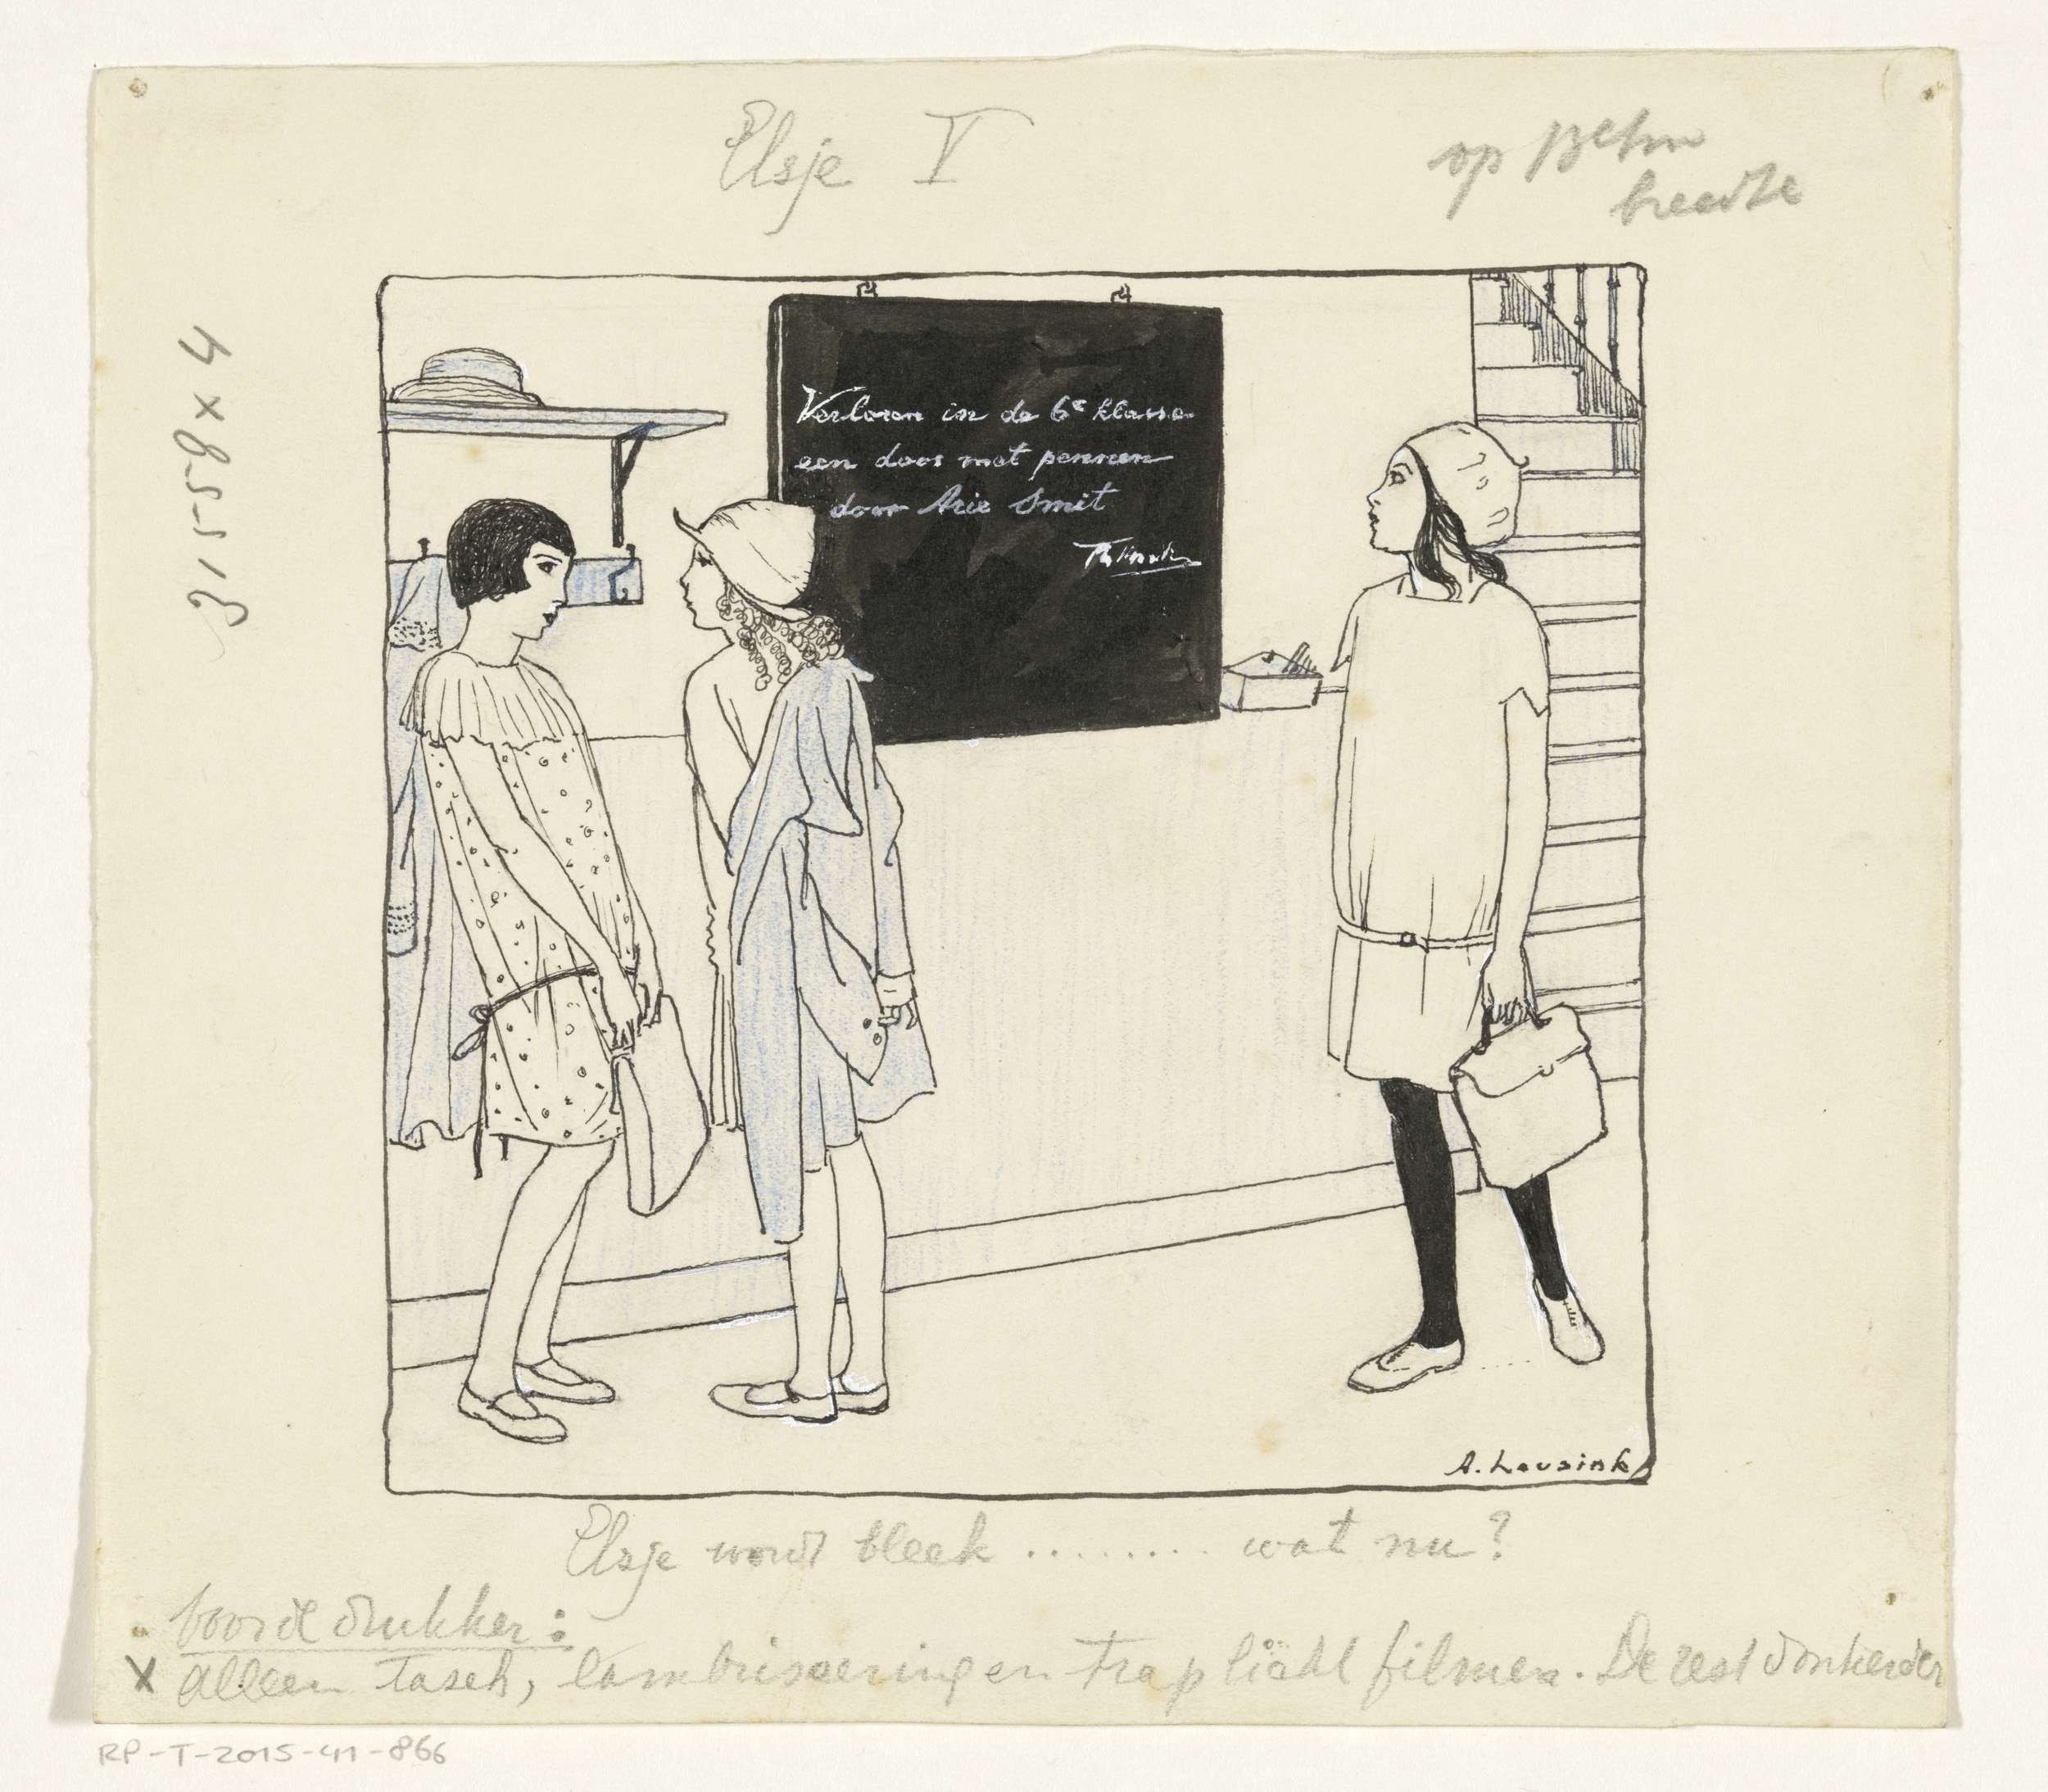 Elsje V
op
breedte
31558 x 4
Verloren in de 6e klasse
een doos met pennen
door Arie Smit
A. Leusink
Elsje wordt bleek ........ wat nu?
Voor de drukker:
X alleen tasch, lambriseering en trap licht filmen. De rest donkerder
RP-T-2015-41-866